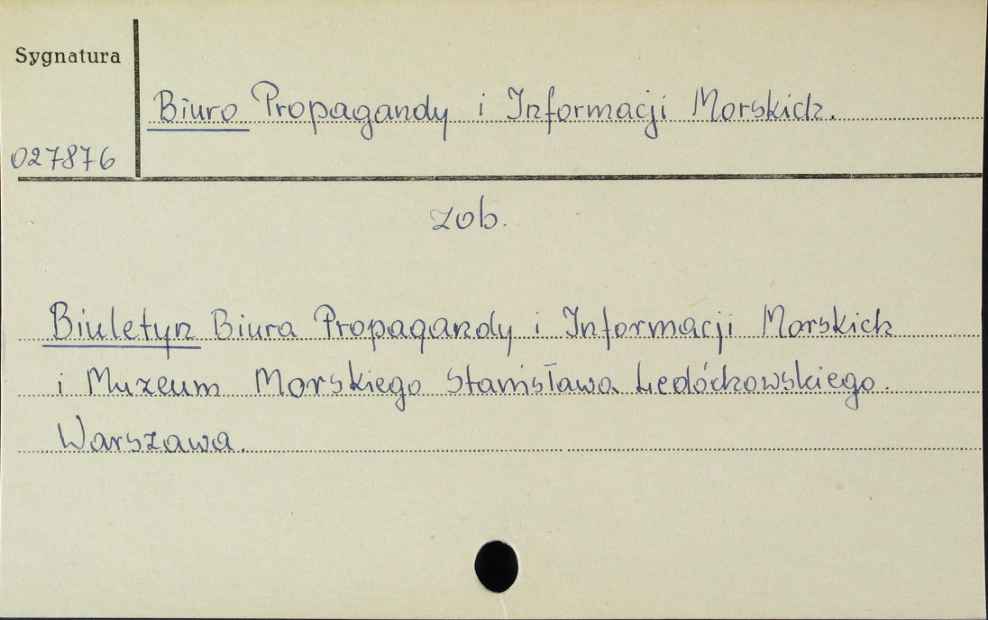 Sygnatura
Biuro Propagandy i Informacji Morskich.
027876
zob.
Biuletyn Biura Propagandy i Informacji Morskich
i Muzeum Morskiego Stanisława Ledóchowskiego.
Warszawa.